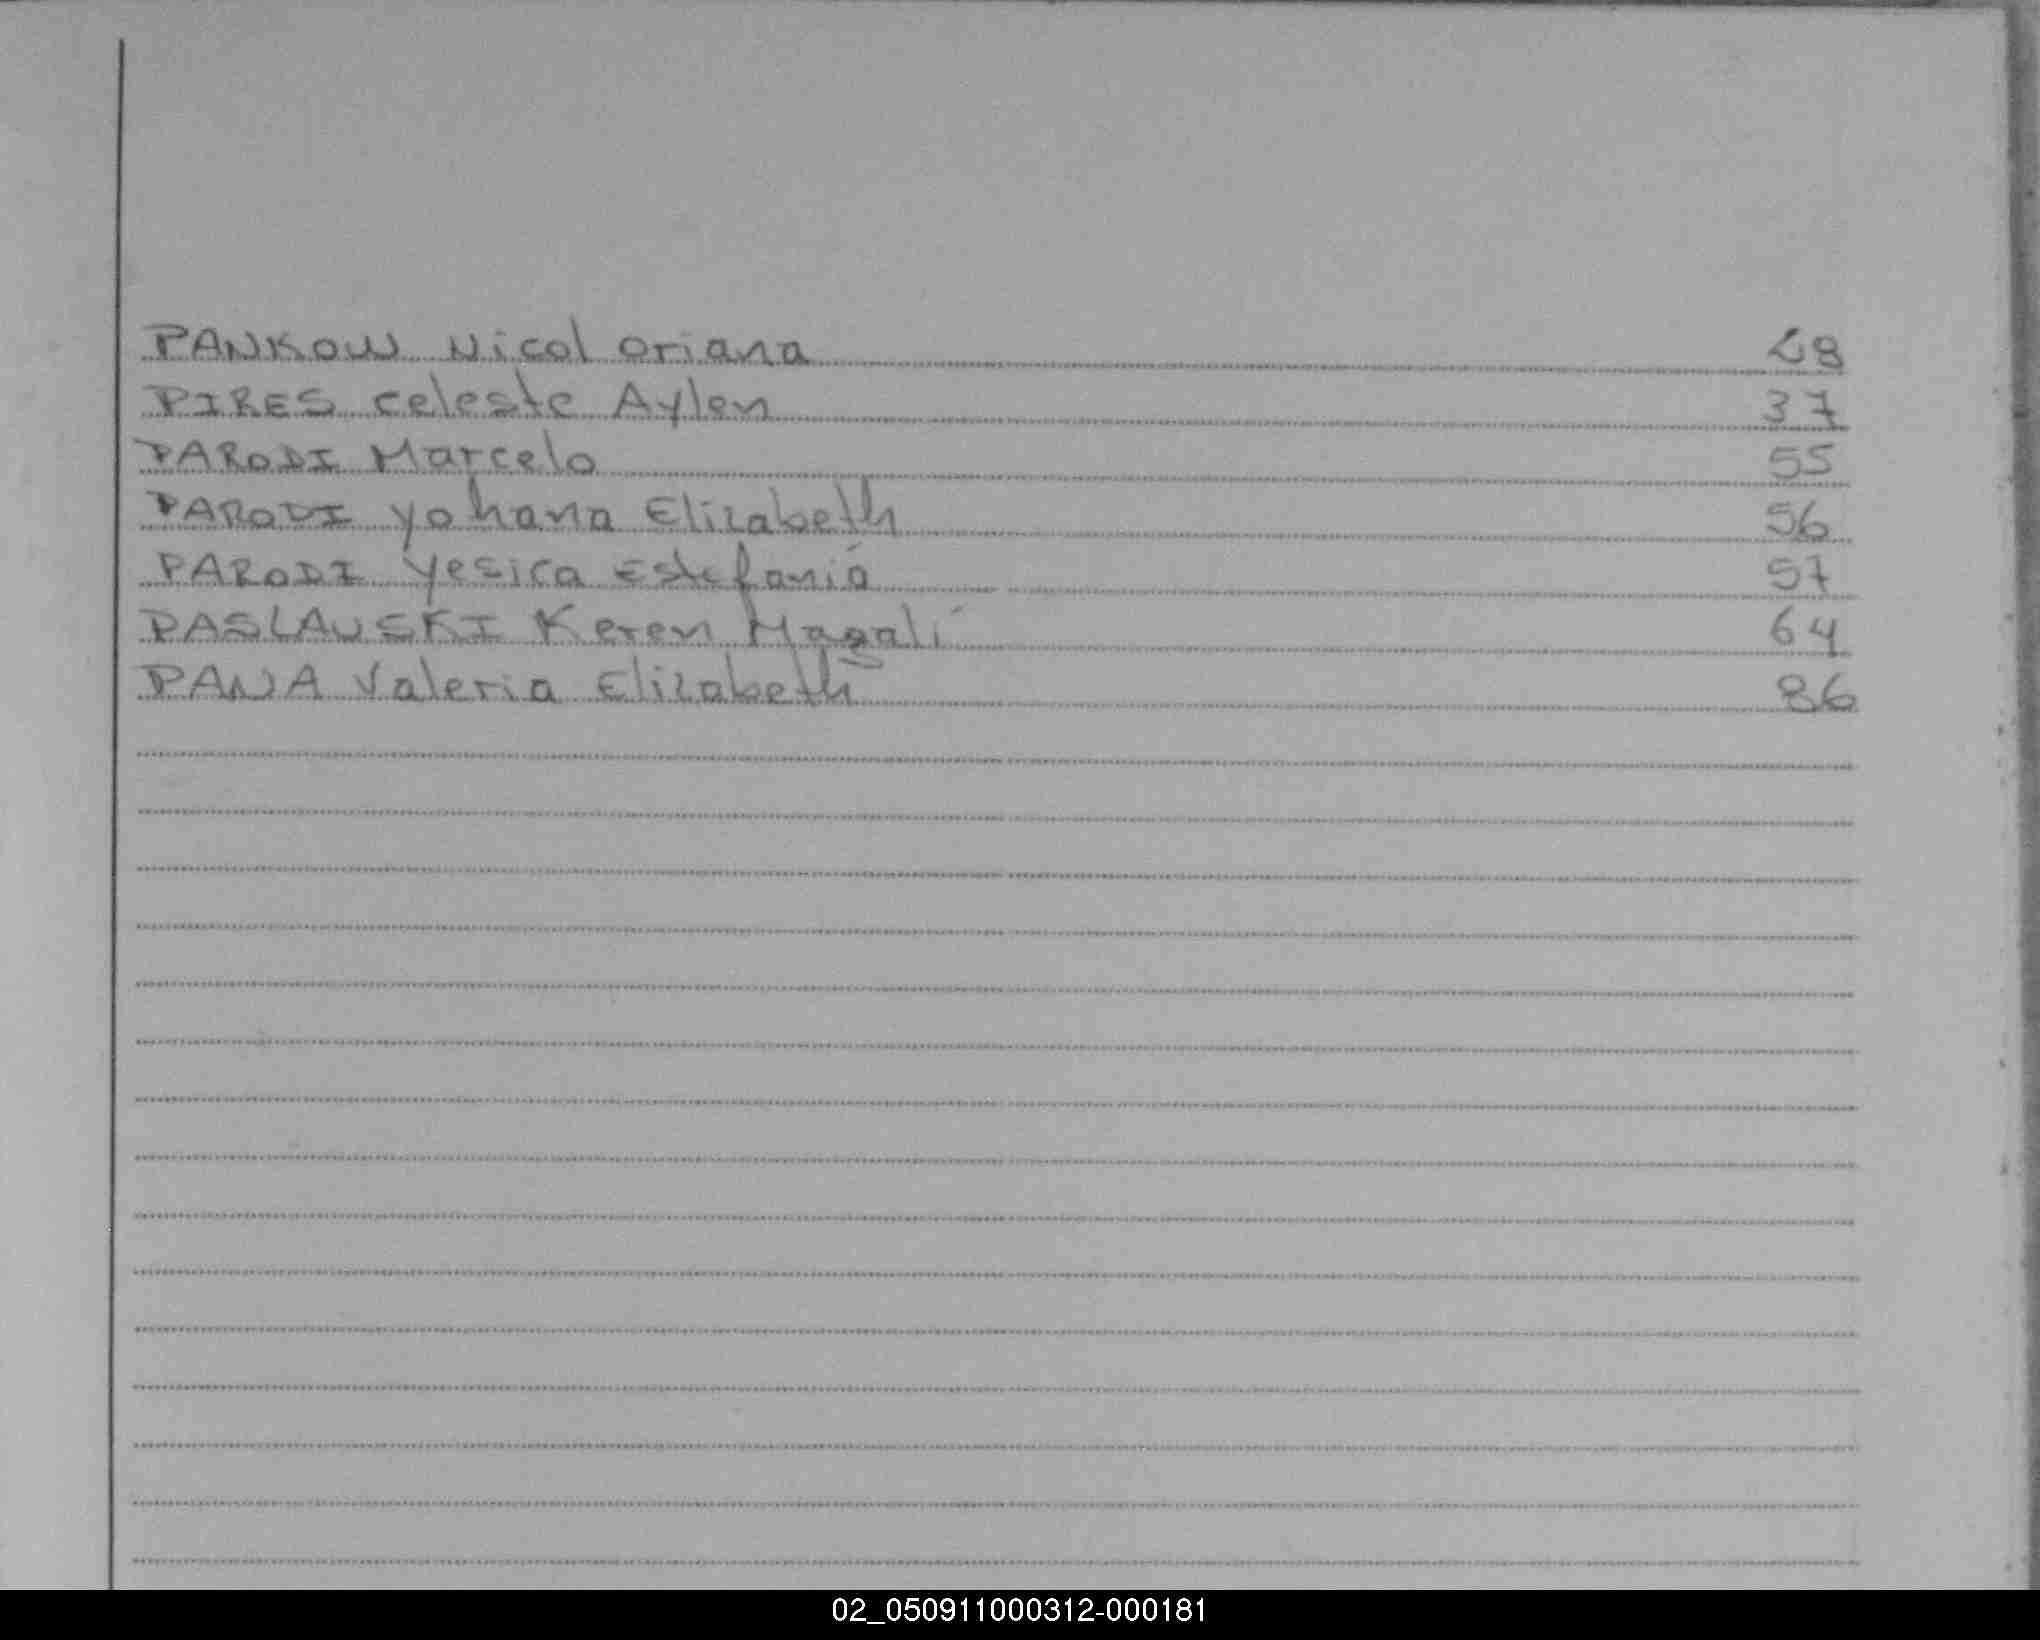 PANKOW Nicol Oriana 28
PIRES Celeste Aylen 37
PARODI Marcelo 55
PARODI Yohana Elizabeth 56
PARODI Yesica Estefanía 57
PASLAUSKI Keren Magalí 64
PANA Valeria Elizabeth 86
02_050911000312-000181